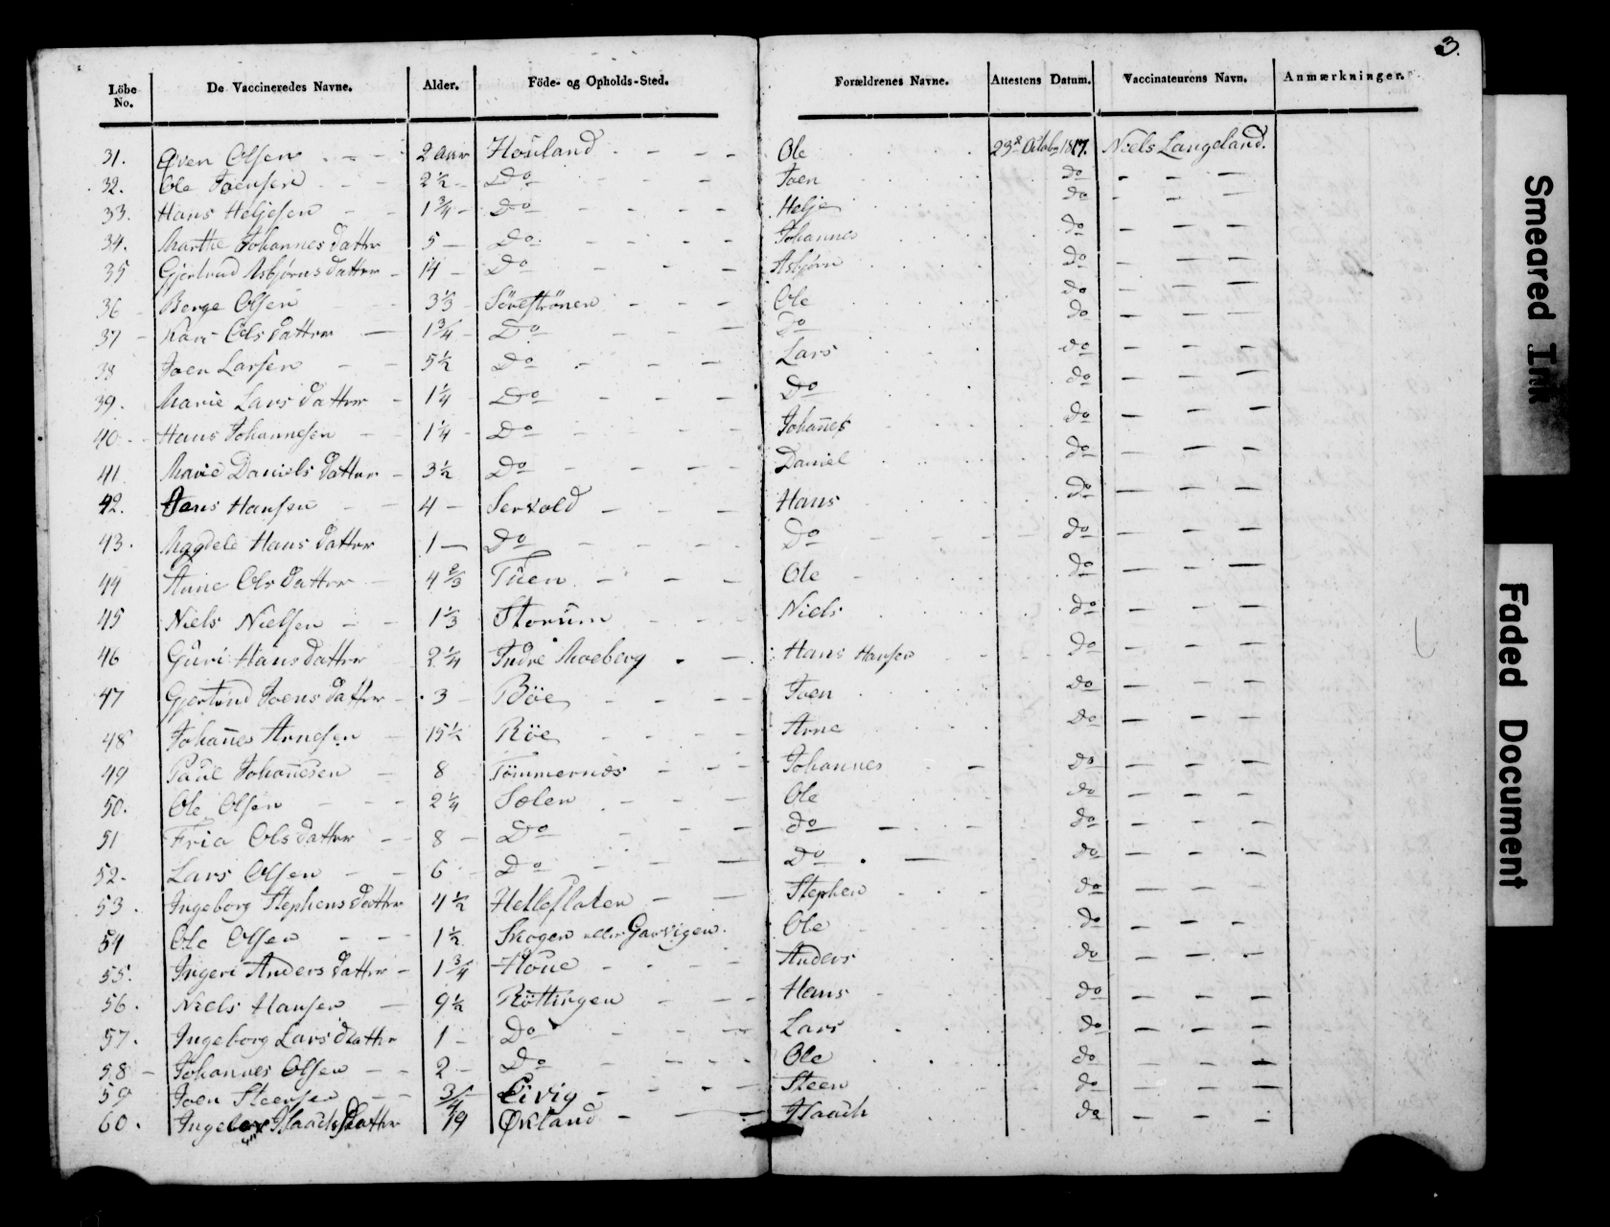 3.
Löbe No. | De Vaccineredes Navne. | Alder. | Föde- og Opholds-Sted. | Forældrenes Navne. | Attestens Datum. | Vaccinateurens Navn. | Anmærkninger.
31. Olsen 2 aar Houland Ole 23de Octobr 1817. Niels Langeland.
32. Ole Joensen 2½ Do Joen do
33. Hans Heljesen 1¾ Do Helje do
34. Marthe Johannesdatter 5 Do Johannes do
35 Gjertrud Asbjørnsdatter 14 Do Asbjørn do
36 Berge Olsen 3⅓ Ole do
37 Kari Olsdatter 1¾ Do Do do
38 Joen Larsen 5½ Do Lars do
39. Marie Larsdatter 1¼ Do Do do
40 Hans Johannesen 1¼ Do Johan̄es do
41 Marie Danielsdatter 3½ Do Daniel do
42. Jens Hansen 4 Servold Hans do
43. Magdele Hansdatter 1 Do Do do
44 Anne Olsdatter 4⅔ Tuen Ole do
45 Niels Nielsen 1⅓ Storum Niels do
46 Guri Hansdatter 2¼ Indre Moeberg Hans Hansen do
47 Gjertrud Joensdatter 3 Böe Joen do
48 Johan̄es Arnesen 15½ Röe Arne do
49 Paul Johan̄esen 8 Tömmernæs Johannes do
50. Ole Olsen 2¼ Sælen Ole do
51 Fria Olsdatter 8 Do do do
52. Lars Olsen 6 Do Do do
53. Ingeborg Stephensdatter 4½ Helleflaten Stephen do
54 Ole Olsen 1½ Skogen eller Garvigen Ole do
55. Ingeri Andersdatter 1¾ Houe Anders do
56. Niels Hansen 9½ Röttingen Hans do
57. Ingeborg Larsdatter 1 Do Lars do
58 Johannes Olsen 2 Do Ole do
59 Joen Steensen ¾ Eivig Steen do
60. Isaachsdatter 19 Økland Isaach do
Smeared Ink
Faded Document